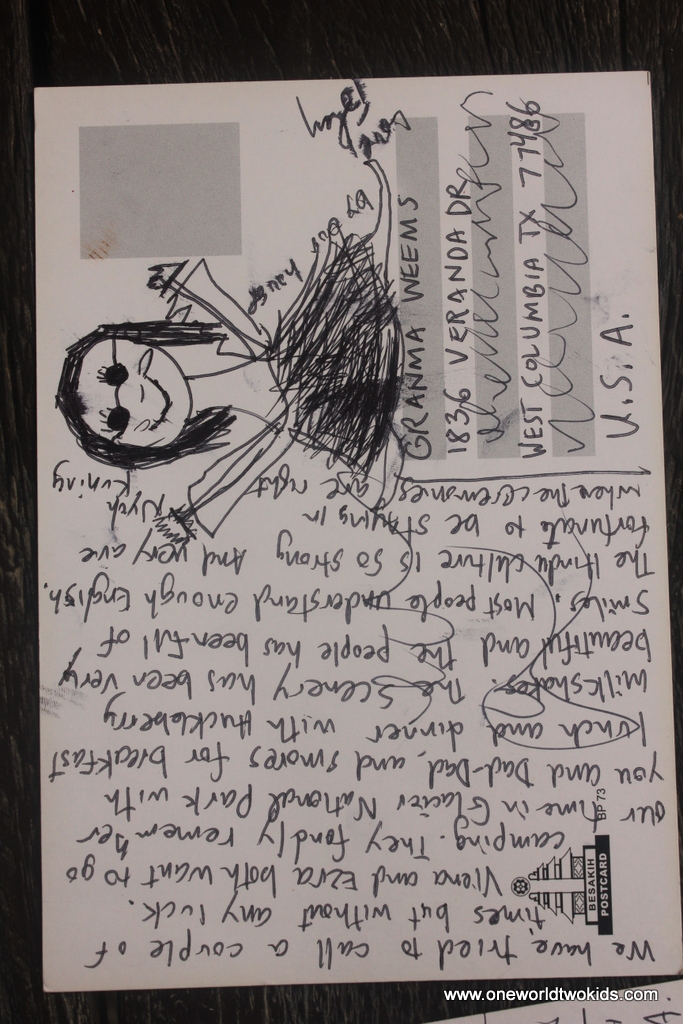 We have tried to call a couple of
times but without any luck.
Viena and Ezra both want to go
camping. They fondly remember
our time in Glacier National Park with
you and Dad-Dad, and smores for breakfast
lunch and dinner with Huckleberry
Milkshakes. The scenery has been very
beautiful and the people has been full of
smiles. Most people understand enough English.
The Hindu culture is so strong and very are
fortunate to be staying in
when the ceremonies are right
Nyuh
Kuning
By our
house
GRANMA WEEMS
1836 VERANDA DR
WEST COLUMBIA TX 77486
U.S.A.
BESAKIH
POSTCARD
BP 73
www.oneworldtwokids.com